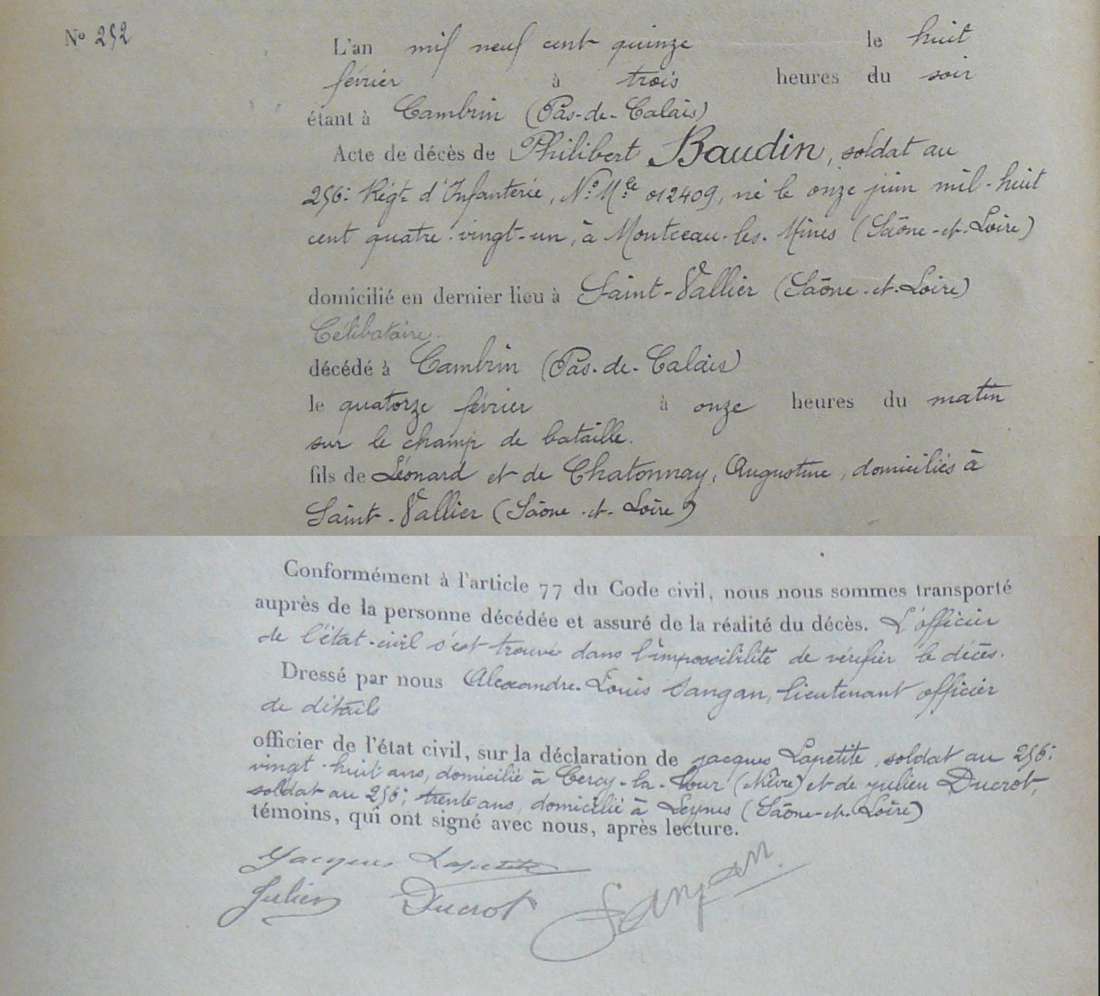 N° 252
L'an mil neuf cent quinze le huit
février à trois heures du soir
étant à Cambrin (Pas-de-Calais)
Acte de décès de Philibert Baudin, soldat au
256e Régt d'Infanterie, N° Mle 012409, né le onze juin mil-huit
cent quatre-vingt-un, à Montceau-les-Mines (Saône-et-Loire)
domicilié en dernier lieu à Saint-Vallier (Saône-et-Loire)
Célibataire.
décédé à Cambrin (Pas-de-Calais)
le quatorze février à onze heures du matin
sur le champ de bataille.
fils de Léonard et de Chatonnay, Augustine, domiciliés à
Saint-Vallier (Saône-et-Loire)
Conformément à l'article 77 du Code civil, nous nous sommes transporté
auprès de la personne décédée et assuré de la réalité du décès. L'officier
de l'état-civil s'est trouvé dans l'impossibilité de vérifier le décès.
Dressé par nous Alexandre-Louis Sangan, lieutenant officier
de détails
officier de l'état civil, sur la déclaration de Jacques Lapetite, soldat au 256e
vingt-huit ans, domicilié à Cercy-la-Tour (Nièvre) et de Julien Ducrot,
soldat au 256e, trente ans, domicilié à Leynes (Saône-et-Loire)
témoins, qui ont signé avec nous, après lecture.
Jacques Lapetite
Julien Ducrot Sangan